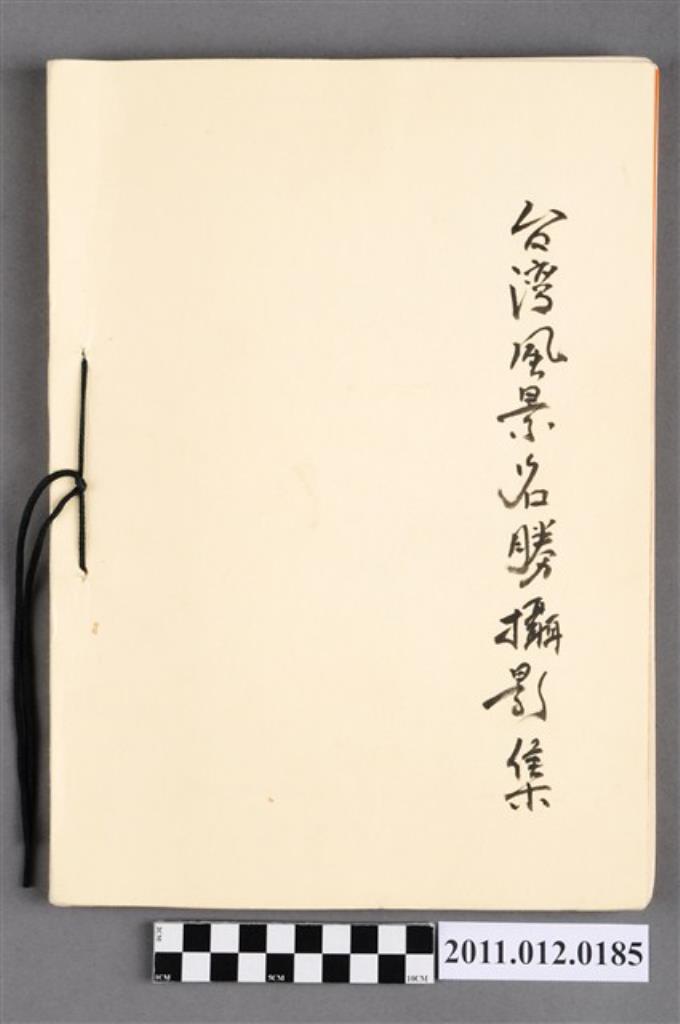 台湾風景名勝攝影集
2CM
1CM
5CM
10CM
2011.012.0185